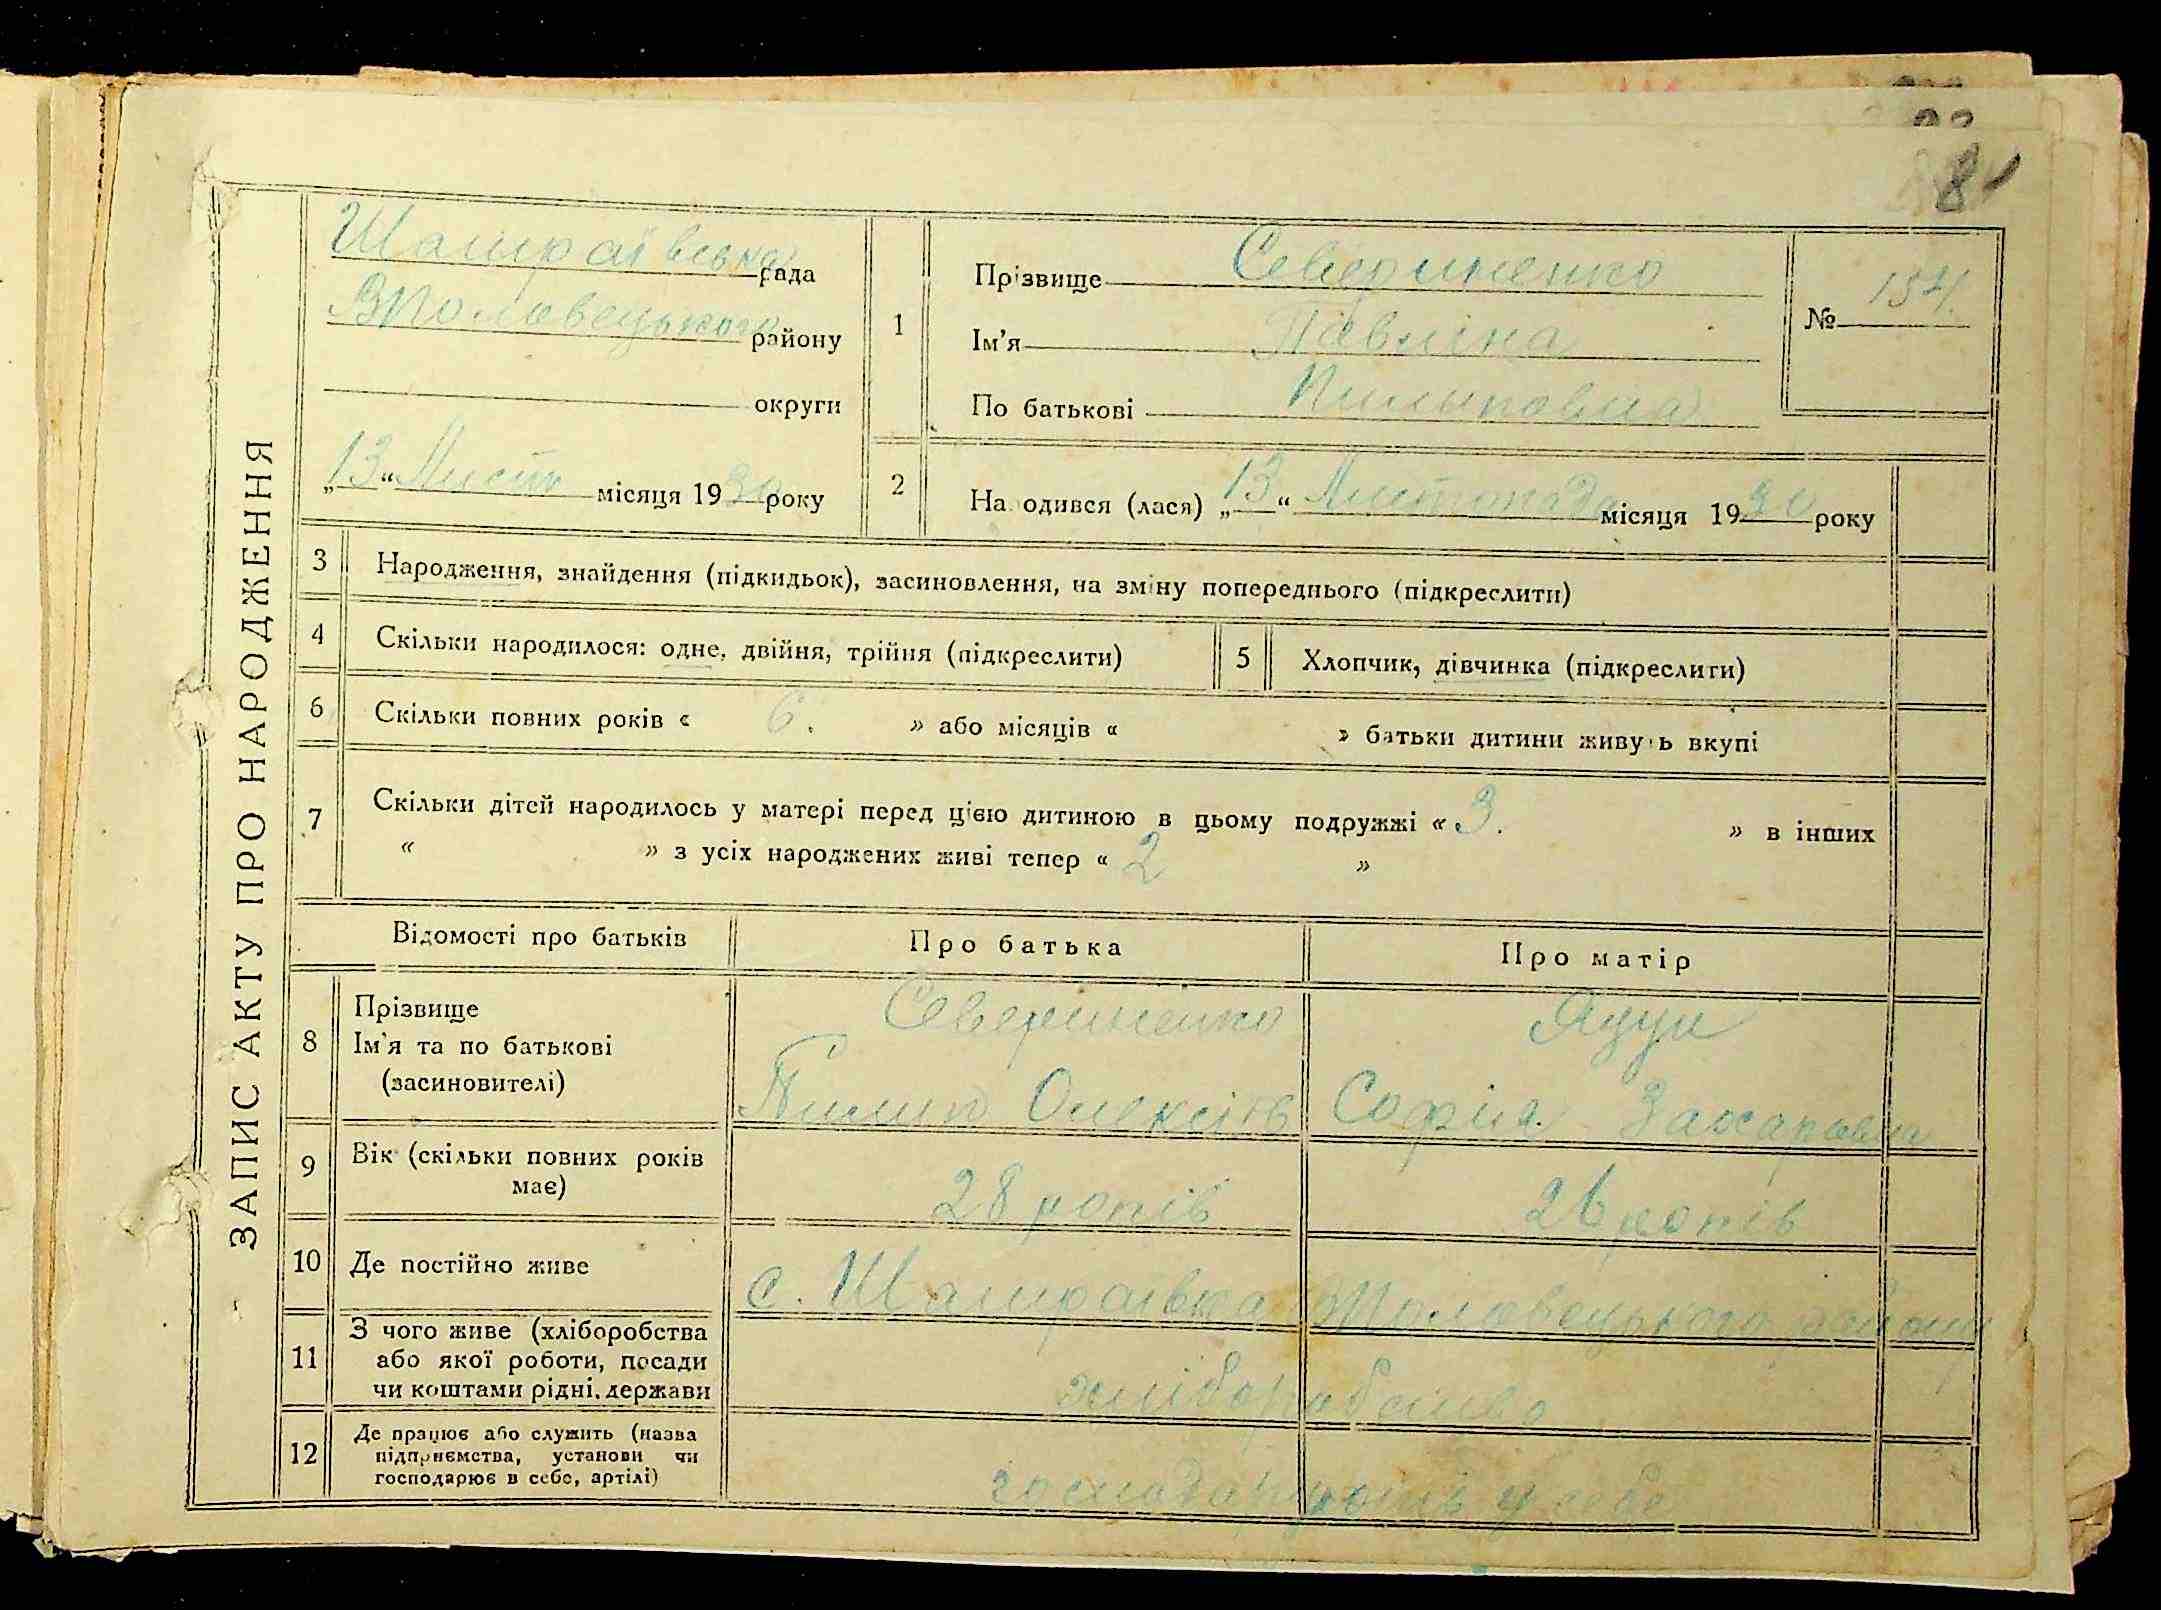 81
ЗАПИС АКТУ ПРО НАРОДЖЕННЯ
Шамраївська рада
ВПоловецького району
округи
„13“ Лист місяця 1930 року
1
Прізвище Севериненко
Ім'я Павліна
По батькові Пилиповна
№ 154
2
Народився (лася) „13“ Листопада місяця 1930 року
3 Народження, знайдення (підкидьок), засиновлення, на зміну попереднього (підкреслити)
4 Скільки народилося: одне, двійня, трійня (підкреслити)
5 Хлопчик, дівчинка (підкреслити)
6 Скільки повних років « 6. » або місяців « » батьки дитини живуть вкупі
7 Скільки дітей народилось у матері перед цією дитиною в цьому подружжі « 3. » в інших
« » з усіх народжених живі тепер « 2 »
Відомості про батьків Про батька Про матір
8 Прізвище
Ім'я та по батькові
(засиновителі)
Севериненко
Пилип Олексіїв
Яцун
Софія Захаровна
9 Вік (скільки повних років
має)
28 років
26 років
10 Де постійно живе
с. Шамраївка ВПоловецького району
11 З чого живе (хліборобства
або якої роботи, посади
чи коштами рідні, держави
хліборобство
12 Де працює або служить (назва
підприємства, установи чи
господарює в себе, артілі)
господарюють у себе